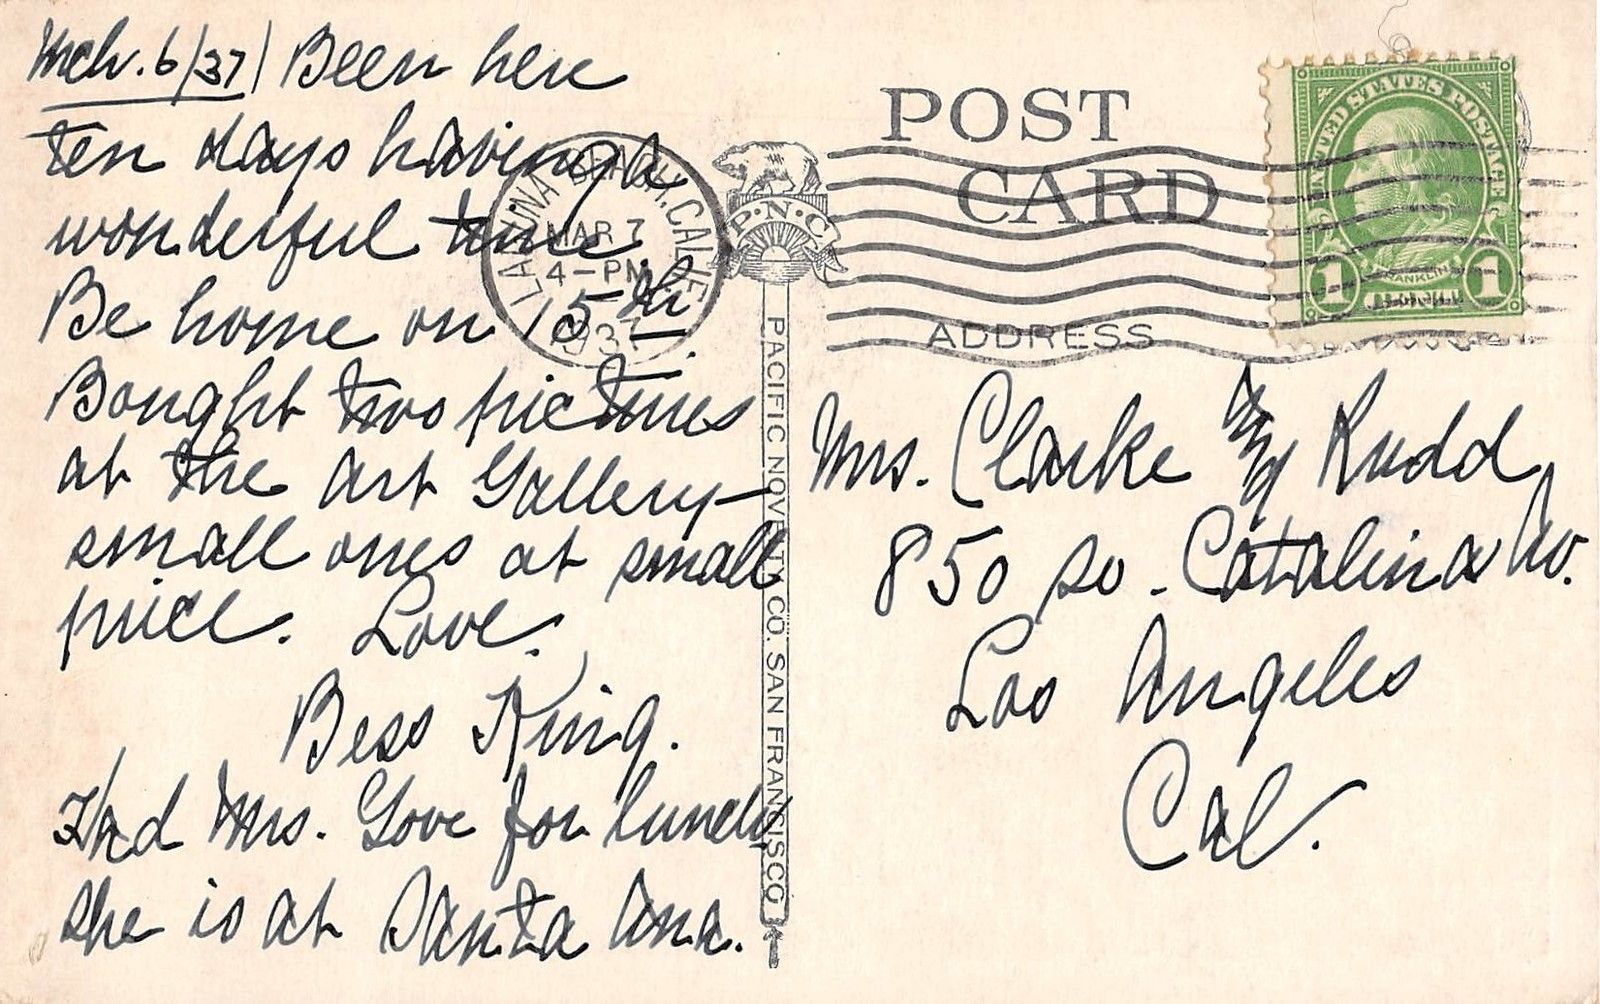 Mch. 6/37 Been here
ten days having a
wonderful time
Be home on 15th.
Bought two pictures
at the Art Gallery—
small ones at small
price. Love.
Bess King.
Had Mrs. Gove for lunch,
she is at Santa Ana.
LAGUNA BEACH, CALIF.
MAR 7
4-PM
1937
P·N·C
PACIFIC NOVELTY CO. SAN FRANCISCO
POST
CARD
ADDRESS
UNITED STATES POSTAGE
FRANKLIN
1 1
Mrs. Clarke Rudd
850 So. Catalina Av.
Los Angeles
Cal.